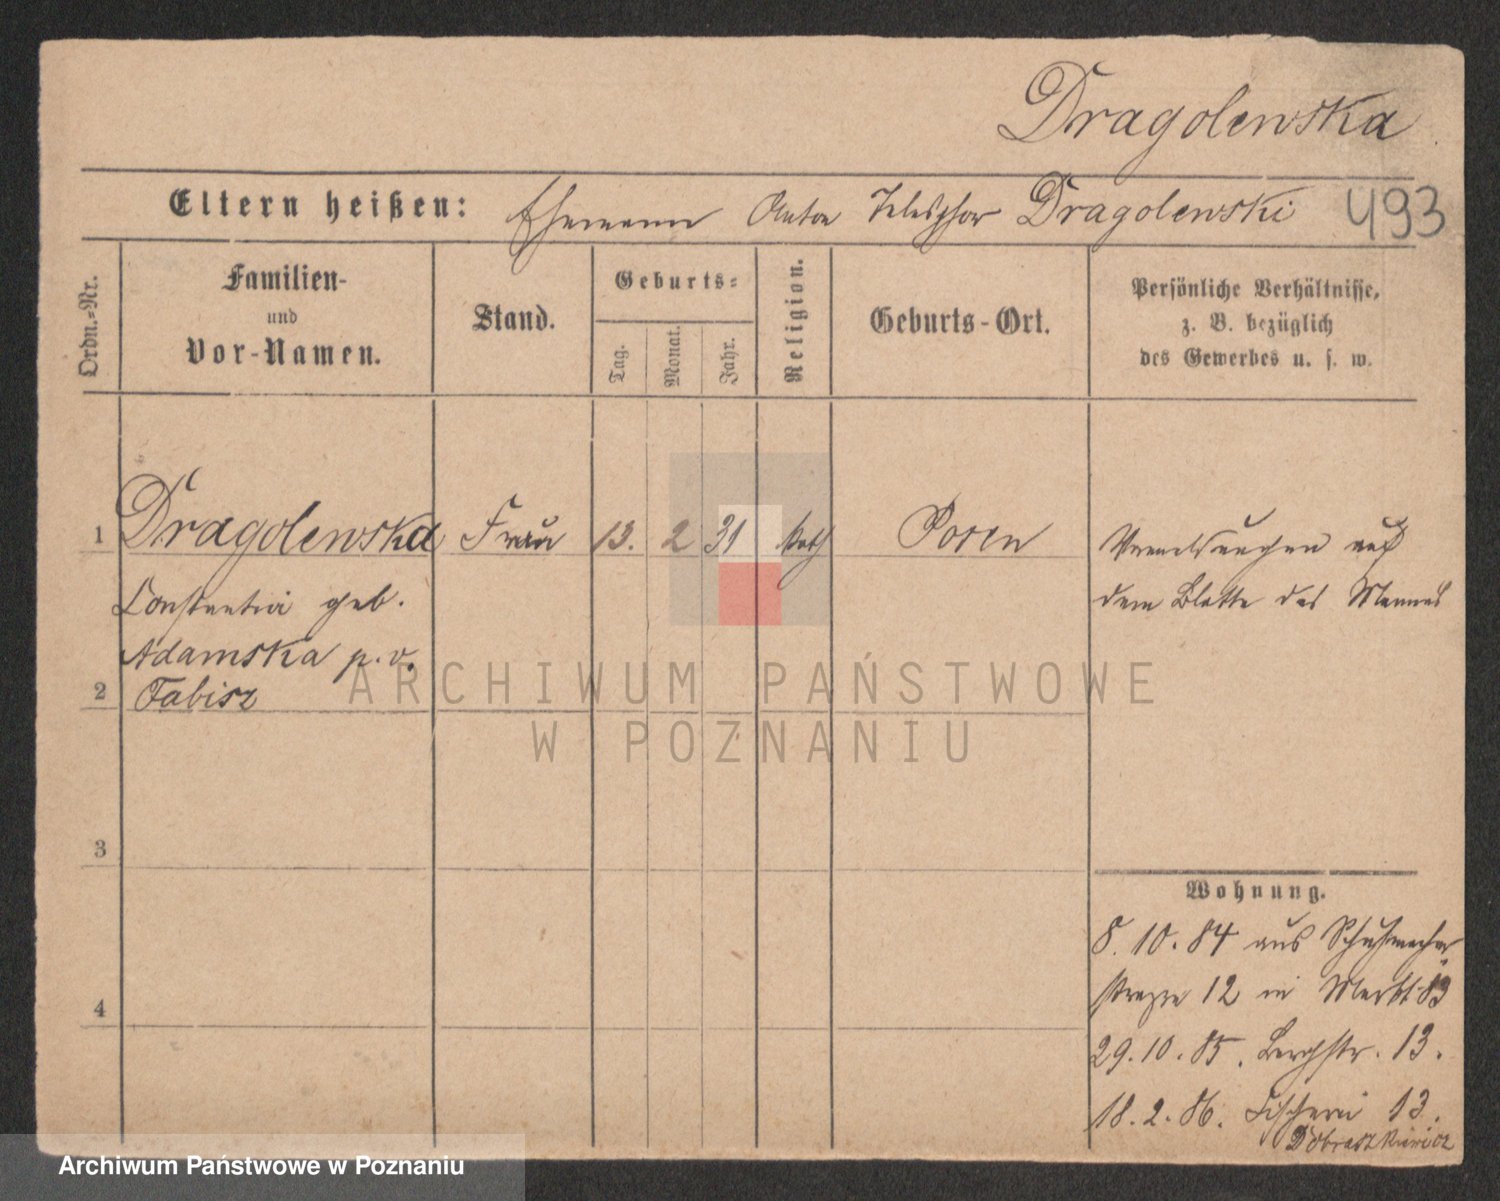 Dragolewska
Eltern heißen: Ehemann Anton Telesphor Dragolewski 493
Ordn.-Nr.
Familien-
und
Vor-Namen.
Stand.
Geburts-
Tag.
Monat.
Jahr.
Religion.
Geburts-Ort.
Persönliche Verhältnisse,
z. B. bezüglich
des Gewerbes u. s. w.
1 Dragolewska Frau 13. 2 31 kath Posen
Constantia geb.
Adamska p. v.
2 Fabisz
3
4
Vermeldungen auf
dem Blatte des Mannes
Wohnung.
8. 10. 84 aus Schuhmacher
strasse 12 in Markt 83
29. 10. 85. Bergstr. 13.
18. 2. 86. Fischerei 13.
Dobraszkiewicz
ARCHIWUM PAŃSTWOWE
W POZNANIU
Archiwum Państwowe w Poznaniu